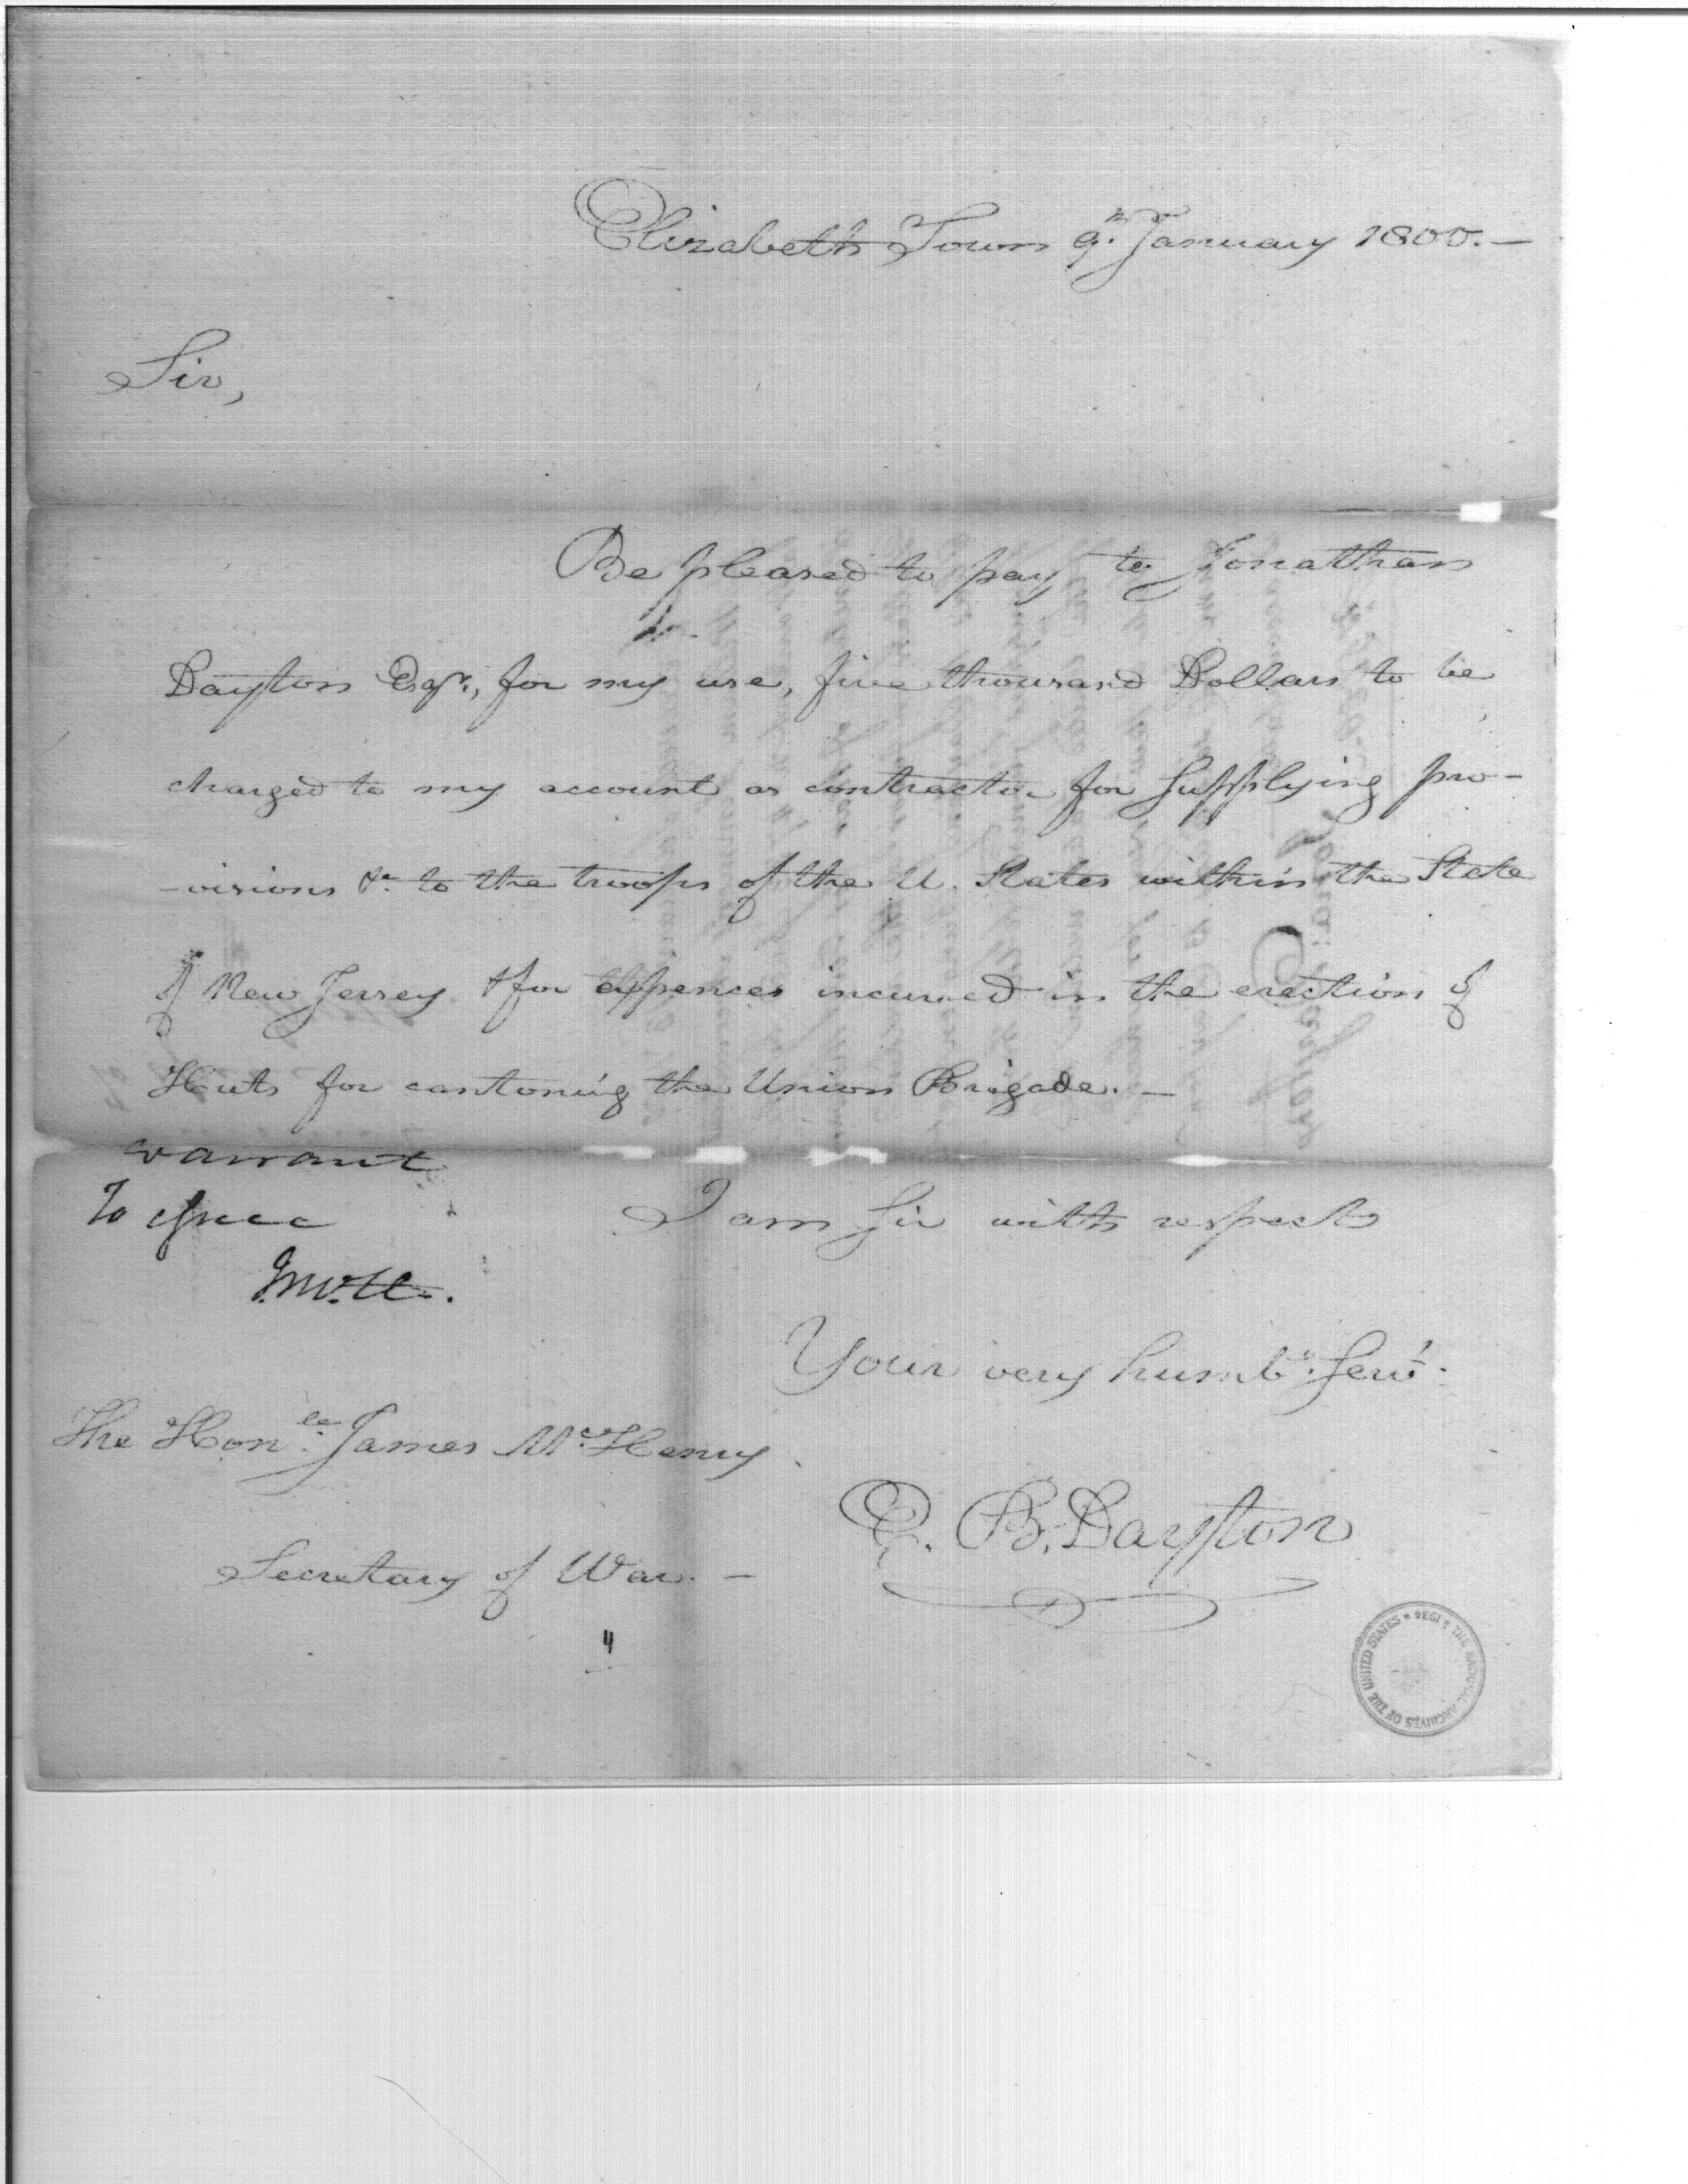 Elizabeth Town 9.th January 1800.—
Sir,
Be pleased to pay to Jonathan
Dayton Esqr., for my use, five thousand Dollars to be
charged to my account as contractor for Supplying pro-
-visions &c. to the troops of the U. States within the State
of New Jersey & for expences incurred in the erection of
Huts for cantoning the Union Brigade.—
warrant
To issue
J.McH.
I am Sir with respect
Your very humble. Servt.
The Honle. James McHenry
Secretary of War.—
E. B. Dayton
4
THE NATIONAL ARCHIVES OF THE UNITED STATES * 1934 *